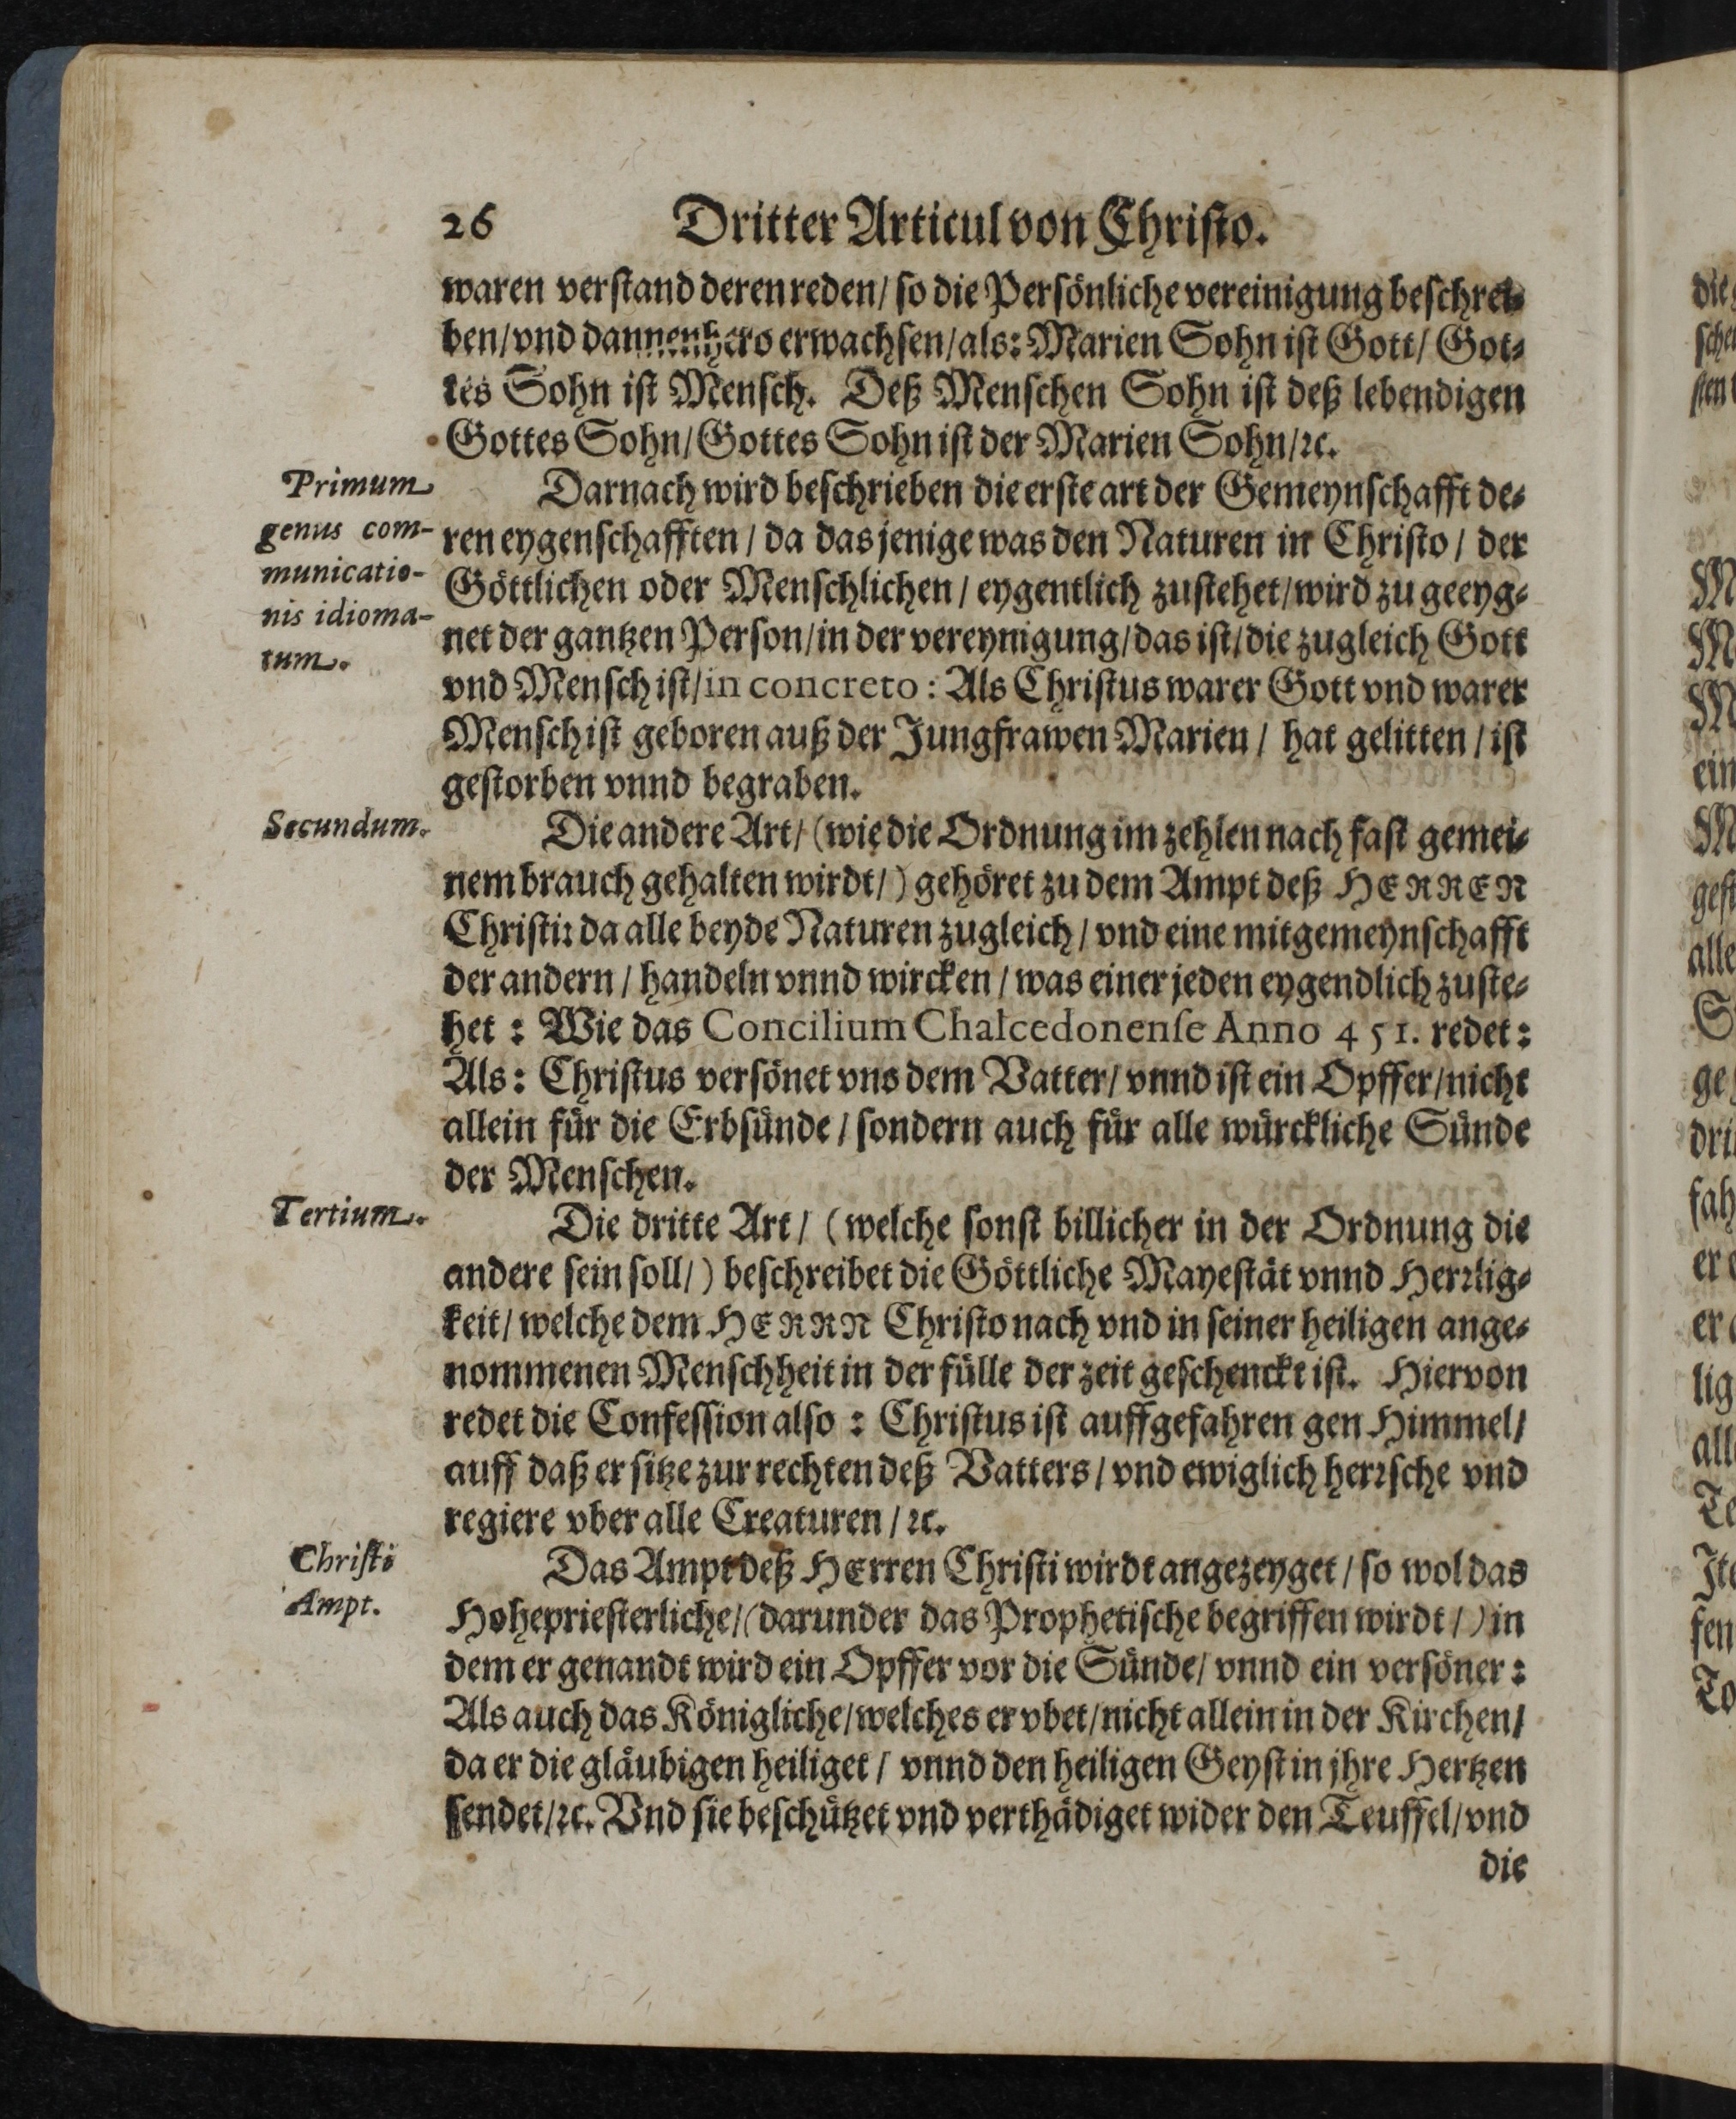 26 Dritter Articul von Christo.
waren verstand deren reden/ so die Persönliche vereinigung beschrei-
ben/ vnd dannenhero erwachsen/ als: Marien Sohn ist Gott/ Got-
tes Sohn ist Mensch. Deß Menschen Sohn ist deß lebendigen
Gottes Sohn/ Gottes Sohn ist der Marien Sohn/ ꝛc.
Primum
genus com-
municatio-
nis idioma-
tum.
Darnach wird beschrieben die erste art der Gemeynschafft de-
ren eygenschafften/ da das jenige was den Naturen in Christo/ der
Göttlichen oder Menschlichen/ eygentlich zustehet/ wird zu geeyg-
net der gantzen Person/ in der vereynigung/ das ist/ die zugleich Gott
vnd Mensch ist/ in concreto: Als Christus warer Gott vnd warer
Mensch ist geboren auß der Jungfrawen Marien/ hat gelitten/ ist
gestorben vnnd begraben.
Secundum.
Die andere Art/ (wie die Ordnung im zehlen nach fast gemei-
nem brauch gehalten wirdt/) gehöret zu dem Ampt deß HERREN
Christi: da alle beyde Naturen zugleich/ vnd eine mitgemeynschafft
der andern/ handeln vnnd wircken/ was einer jeden eygendlich zuste-
het: Wie das Concilium Chalcedonense Anno 451. redet:
Als: Christus versönet vns dem Vatter/ vnnd ist ein Opffer/ nicht
allein für die Erbsünde/ sondern auch für alle würckliche Sünde
der Menschen.
Tertium.
Die dritte Art/ (welche sonst billicher in der Ordnung die
andere sein soll/) beschreibet die Göttliche Mayestät vnnd Herrlig-
keit/ welche dem HERRN Christo nach vnd in seiner heiligen ange-
nommenen Menschheit in der fülle der zeit geschenckt ist. Hiervon
redet die Confession also: Christus ist auffgefahren gen Himmel/
auff daß er sitze zur rechten deß Vatters/ vnd ewiglich herrsche vnd
regiere vber alle Creaturen/ ꝛc.
Christi
Ampt.
Das Ampt deß HErren Christi wirdt angezeyget/ so wol das
Hohepriesterliche/ (darunder das Prophetische begriffen wirdt/) in
dem er genandt wird ein Opffer vor die Sünde/ vnnd ein versöner:
Als auch das Königliche/ welches er vbet/ nicht allein in der Kirchen/
da er die gläubigen heiliget/ vnnd den heiligen Geyst in jhre Hertzen
sendet/ ꝛc. Vnd sie beschützet vnd verthädiget wider den Teuffel/ vnd
die